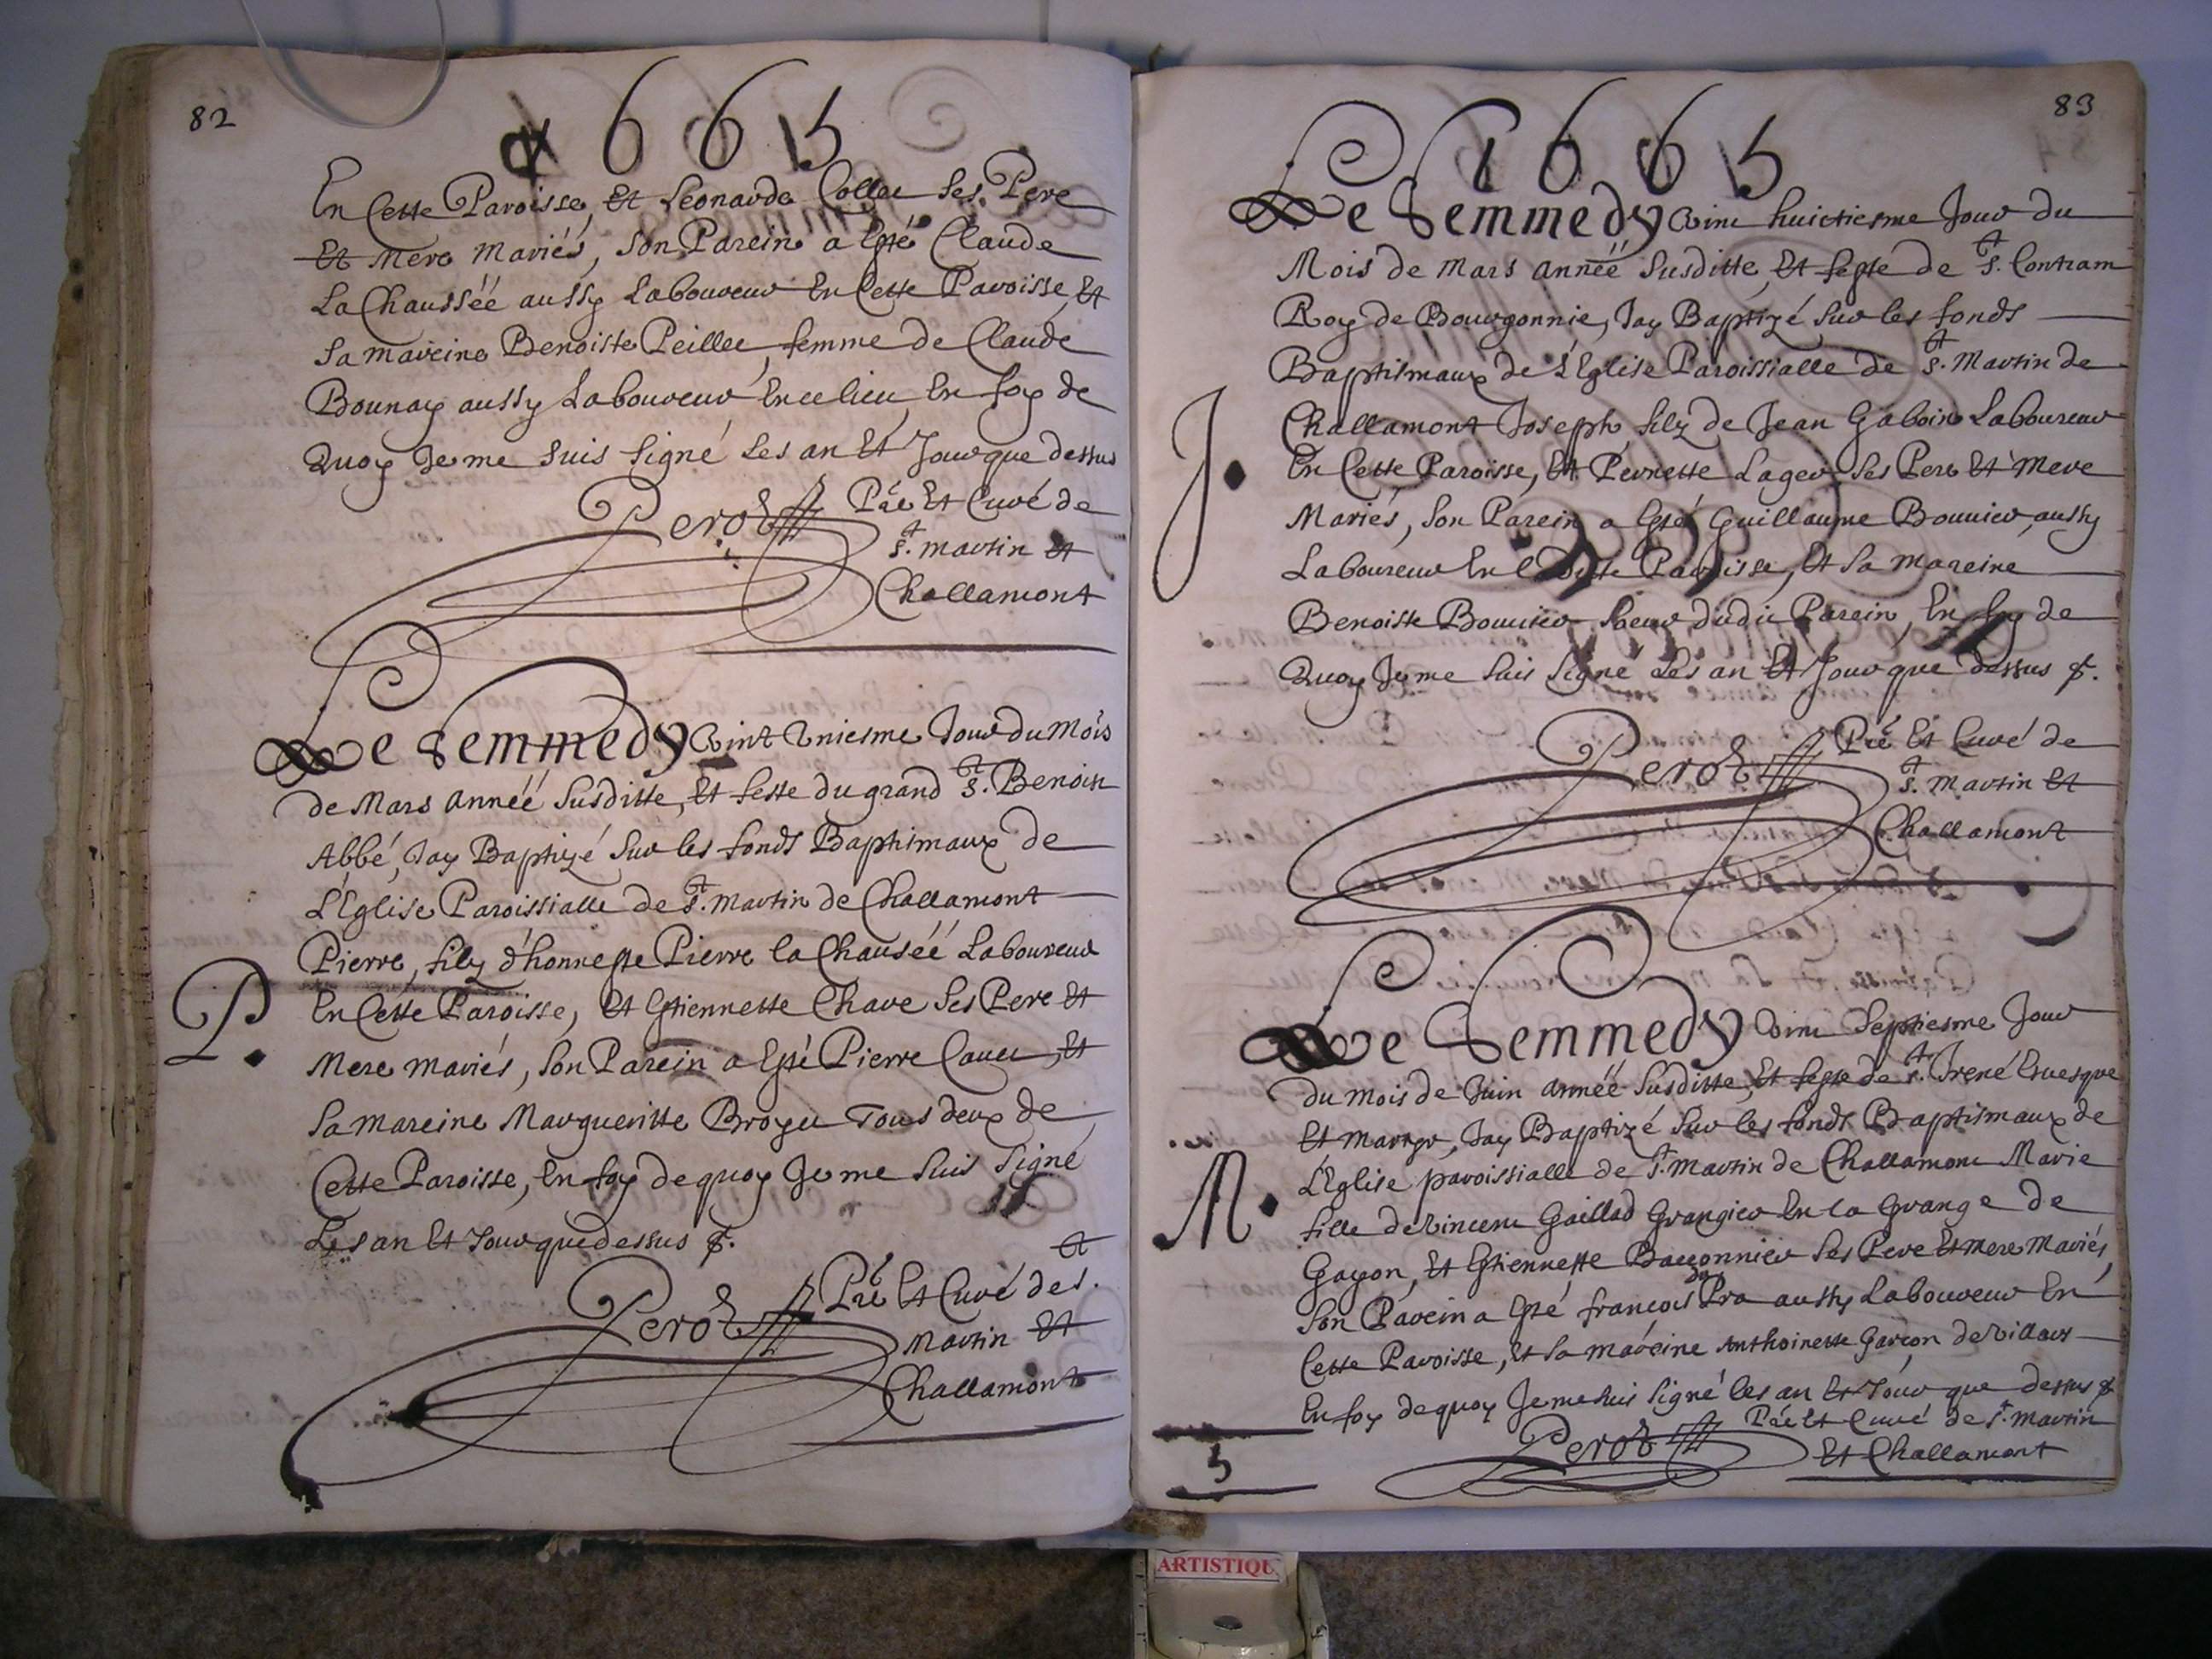 82
1665
En Cette Paroisse, Et Leonarde Collet Ses Pere
Et Mere Mariés, Son Parein a Esté Claude
La Chaussée aussy Laboureur En Cette Paroisse, Et
Sa mareine Benoiste Peillet, femme de Claude
Bounay aussy Laboureur En ce lieu, En foy de
Quoy Je me Suis Signé Les an Et Jour que dessus
Perot Pre Et Curé de
St. Martin Et
Challamont
Le Semmedy Vint Uniesme Jour du Mois
de Mars Année Susditte, Et feste du grand St. Benoist
Abbé, Jay Baptizé Sur les fonds Baptismaux de
L'Eglise Paroissialle de St. Martin de Challamont
Pierre, filz d'honneste Pierre la Chausée Laboureur
P.
En Cette Paroisse, Et Estiennette Chave Ses Pere Et
Mere Mariés, Son Parein a Esté Pierre Cauet, Et
Sa Mareine Margueritte Broyet Tous deux de
Cette Paroisse, En foy de quoy Je me Suis Signé
Les an Et Jour que dessus &.
Perot Pre Et Curé de St.
Martin Et
Challamont
83
1665
Le Semmedy Vint huictiesme Jour du
Mois de Mars Année Susditte, Et feste de St. Contram
Roy de Bourgonnie, Jay Baptizé Sur les fonds
Baptismaux de L'Eglise Paroissialle de St. Martin de
Challamont Joseph, filz de Jean Gaboin Laboureur
J.
En Cette Paroisse, Et Pernette Lager Ses Pere Et Mere
Mariés, Son Parein a Esté Guillaume Bouuier, aussy
Laboureur En Cette Paroisse, Et Sa Mareine
Benoiste Bouuier Soeur dudit Parein, En foy de
Quoy Je me Suis Signé Les an Et Jour que dessus &.
Perot Pre Et Curé de
St. Martin Et
Challamont
Le Semmedy Vint Septiesme Jour
du Mois de Juin Année Susditte, Et feste de St. Irené Evesque
Et Martyr, Jay Baptizé Sur les fonds Baptismaux de
L'Eglise paroissialle de St. Martin de Challamont Marie
M.
fille de Vincent Gaillad Grangier En la Grange de
Gayon, Et Estiennette Baconnier Ses Pere Et Mere Mariés,
Son Parein a Esté françois du Pra aussy Laboureur En
Cette Paroisse, Et Sa mareine Anthoinette Garçon de Villars
En foy de quoy Je me Suis Signé les an Et Jour que dessus &
Perot Pre Et Curé de St. Martin
Et Challamont
5
ARTISTIQU